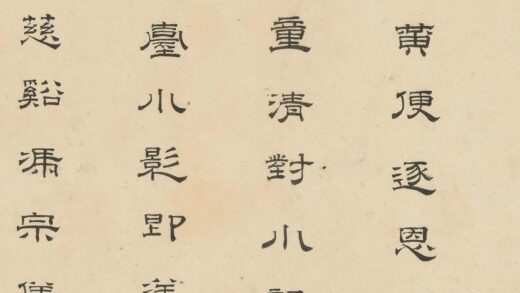 黄便逐恩
童清對小
臺小影即
慈谿馮宗